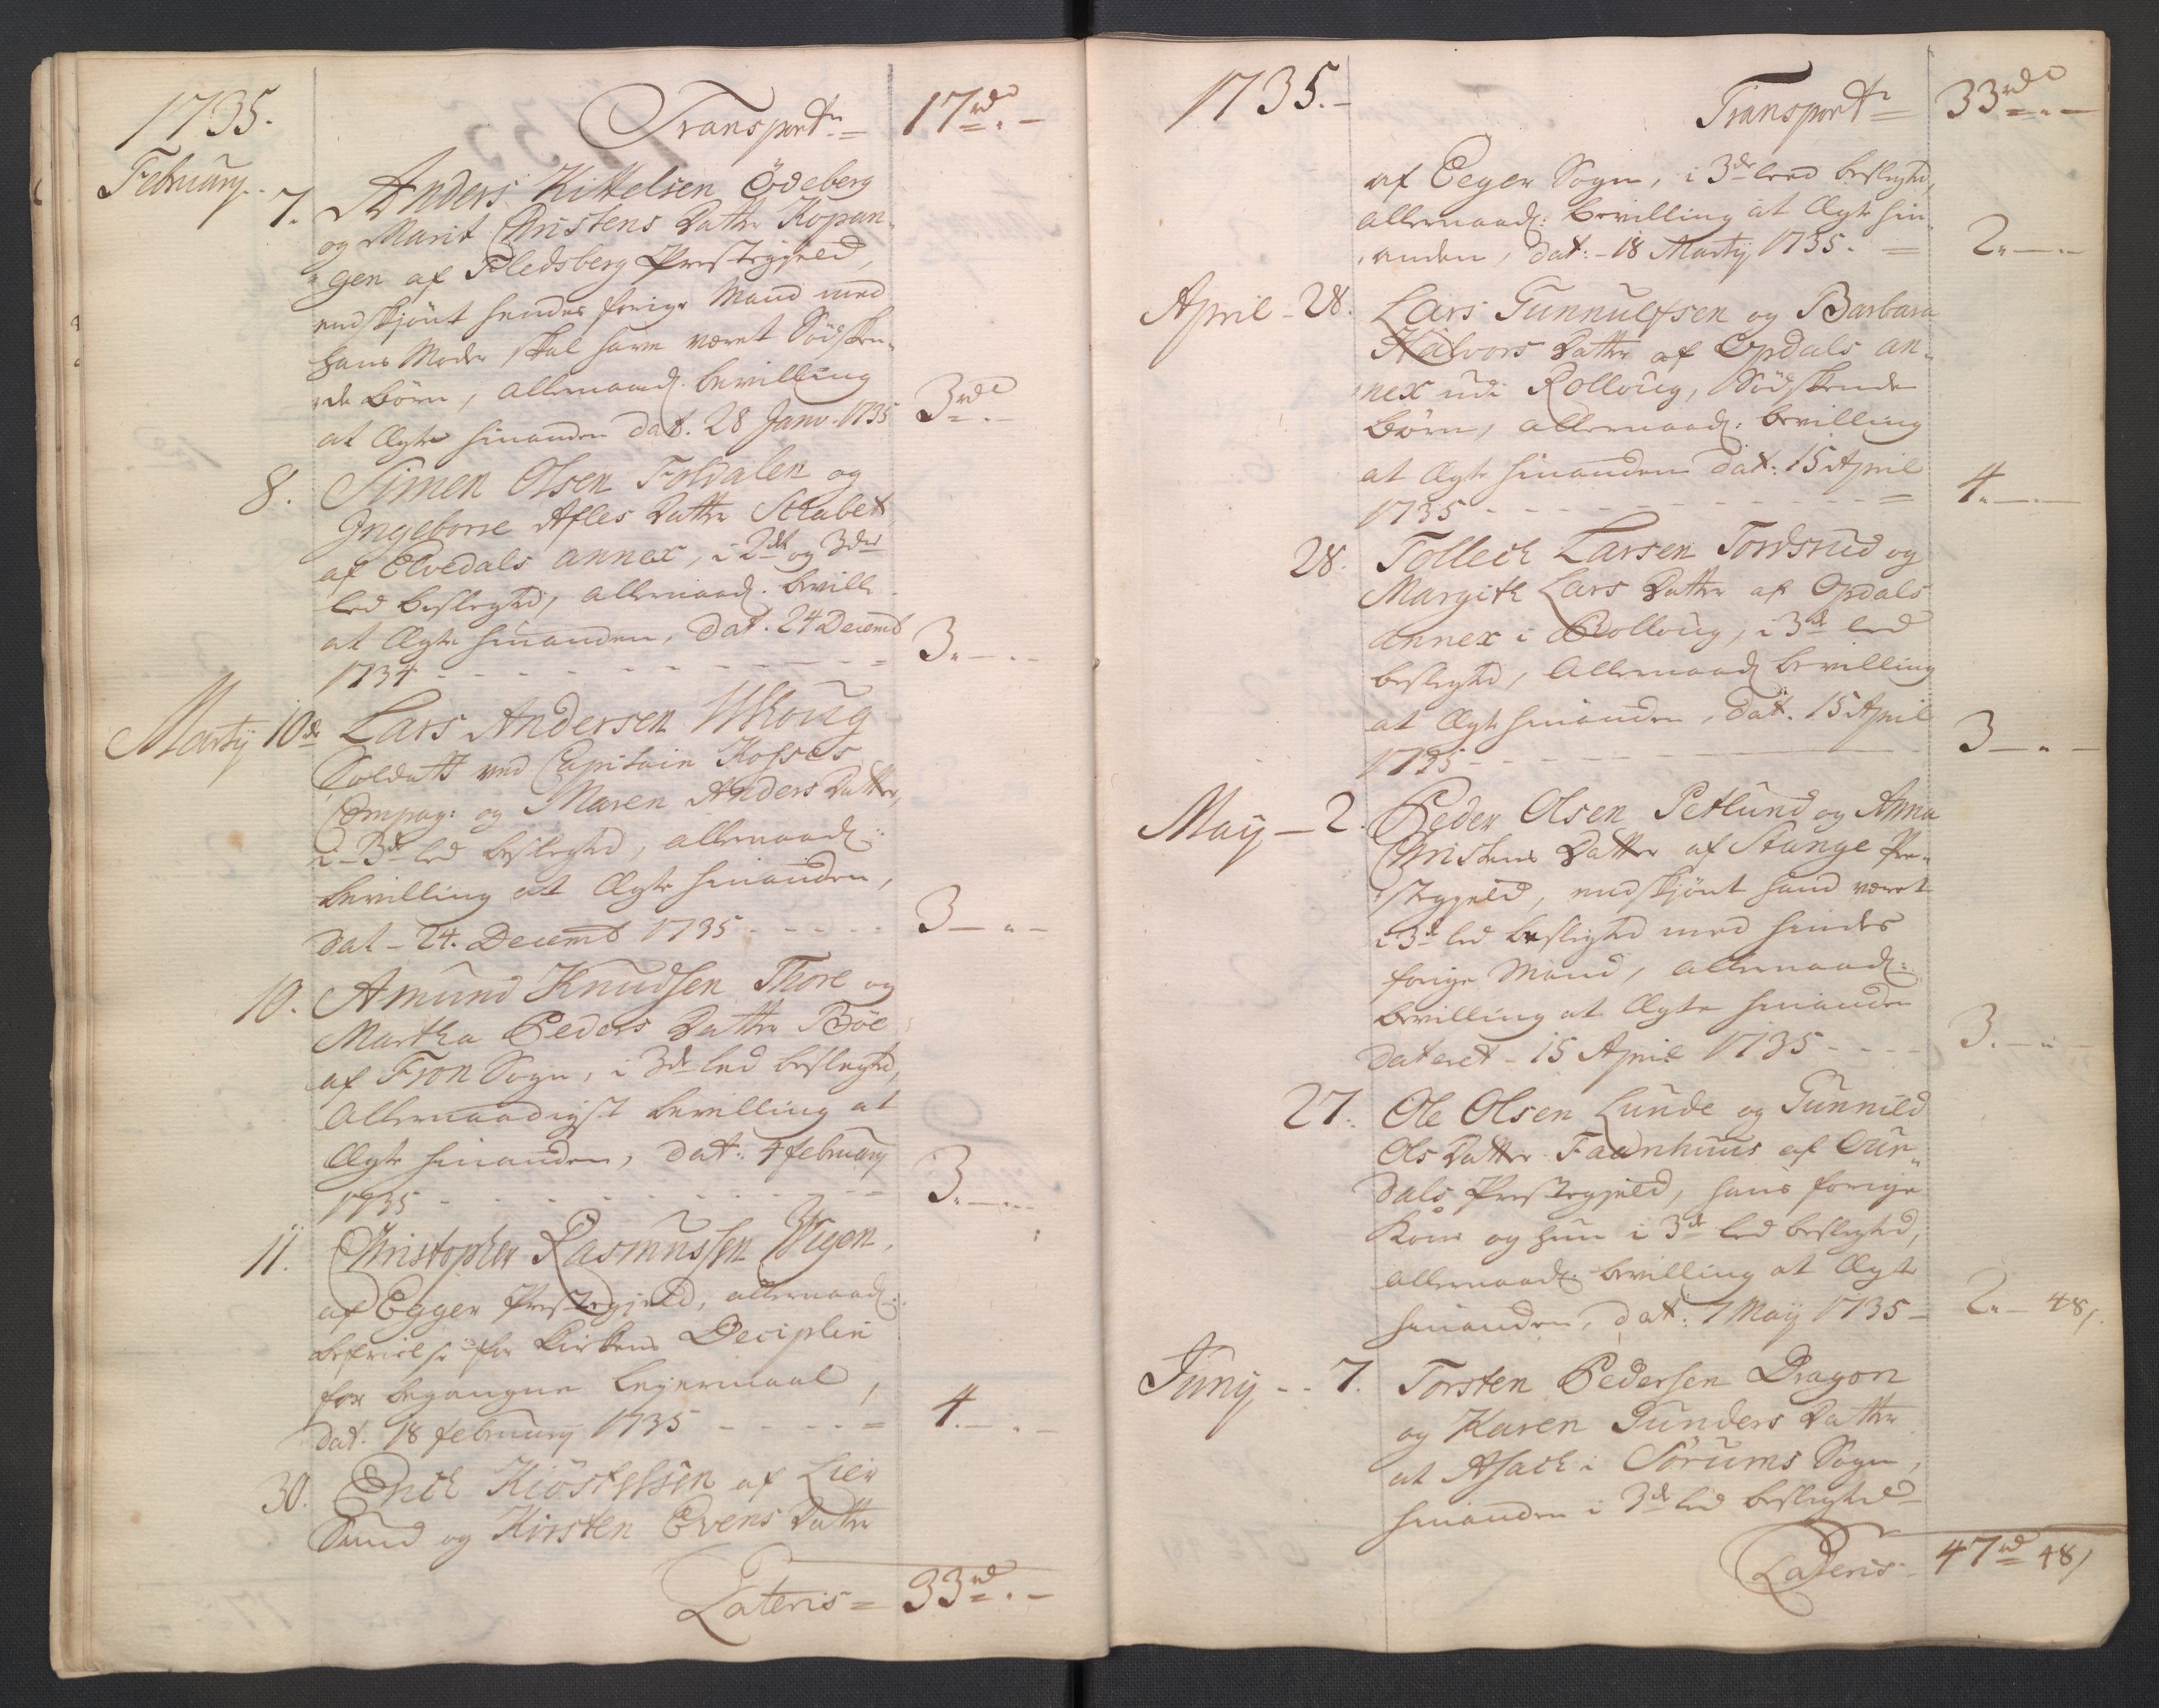 1735.
Transport = 17 rd. -
February. 7. Anders Kittelsen Ödeberg
og Marit Christens Datter Kopan-
gen af Fledsberg Præstegield,
endskiönt hendes forige Mand med
hans Moder skal have været Södsken-
de börn, allernaad. bevilling
at Ægte hinanden dat. 28 Janv. 1735 3 rd. -
8. Simen Olsen Foldalen og
Ingeborre Afles Datter Strabet
af Elvedals annex, i 2det og 3die
led beslegted, allernaad. bevill.
at Ægte hinanden, dat. 24 Decemb
1734 - - - - - - - = 3. - . -
Martij 10de Lars Andersen Skoug
Soldatt ved Capitain Kofsøes
Compag: og Maren Anders Datter,
i 3de led beslegted, allernaad:
bevilling at Ægte hinanden,
dat - 24. Decemb 1735 - - - - - 3 - . -
10. Amund Knudsen Thore og
Martha Peders Datter Böe
af Fron Sogn, i 3de led beslegted,
Allernaadigst bevilling at
Ægte hinanden, dat: 4 february
1735 - - - - - - - - = 3. - . .
11. Christopher Rasmussen Wigen,
af Egger Præstegield, allernaad:
befrielse for Kirkens Deciplin
for begangne Leyermaal,
dat. 18 february 1735 - - - - = 4. - . -
30. Erich Kiöstelsen af Lier
Sund og Kirsten Evens Datter
Lateris = 33 rd. -
1735. -
Transport = 33 rd. -
af Eeger Sogn, i 3de leed beslegted,
allernaad: bevilling at Ægte hin-
anden, dat: - 18 Martij 1735. = 2. - . -
April - 28. Lars Gunnulfsen og Barbara
Halvors Datter af Opdals an-
nex udi Rolloug, Södskende
börn, allernaad: bevilling
at Ægte hinanden dat: 15 April
1735 - - - - - - - - = 4. - . -
28. Tollech Larsen Tordsrud og
Margith Lars Datter af Opdals
annex i Rolloug, i 3de led
beslegted, Allernaad bevilling
at Ægte hinanden, dat. 15 April
1735 - - - - - 3 - . -
Maij - 2. Peder Olsen Petlund og Anna
Christens Datter af Stange Præ-
stegield, endskiönt hand været
i 3de led beslegted med hendes
forige Mand, allernaad:
bevilling at Ægte hinanden
dateret - 15 April 1735 - - - - 3. - . -
27. Ole Olsen Lunde og Gunnild
Ols Datter Faanhuus af Our-
dals Præstegield, hans forige
Kone og hun i 3de led beslegted,
allernaad. bevilling at Ægte
hinanden, dat: 7 Maij 1735 - 2. - 48,
Junij - - 7. Torsten Pedersen Dragon
og Karen Gunders Datter
at Asach i Sörums Sogn,
hinanden i 3de led beslegted
Lateris - 47 rd 48,